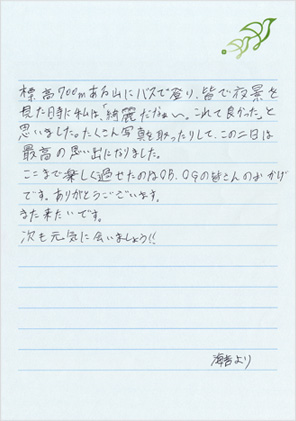 標高700mある山にバスで登り、皆で夜景を
見た時に私は、「綺麗だなぁ〜。これて良かった。」と
思いました。たくさん写真を取ったりして、この二日は
最高の思い出になりました。
ここまで楽しく過せたのはOB、OGの皆さんのおかげ
です。ありがとうございます。
また来たいです。
次も元気に会いましょう!!
海吉より